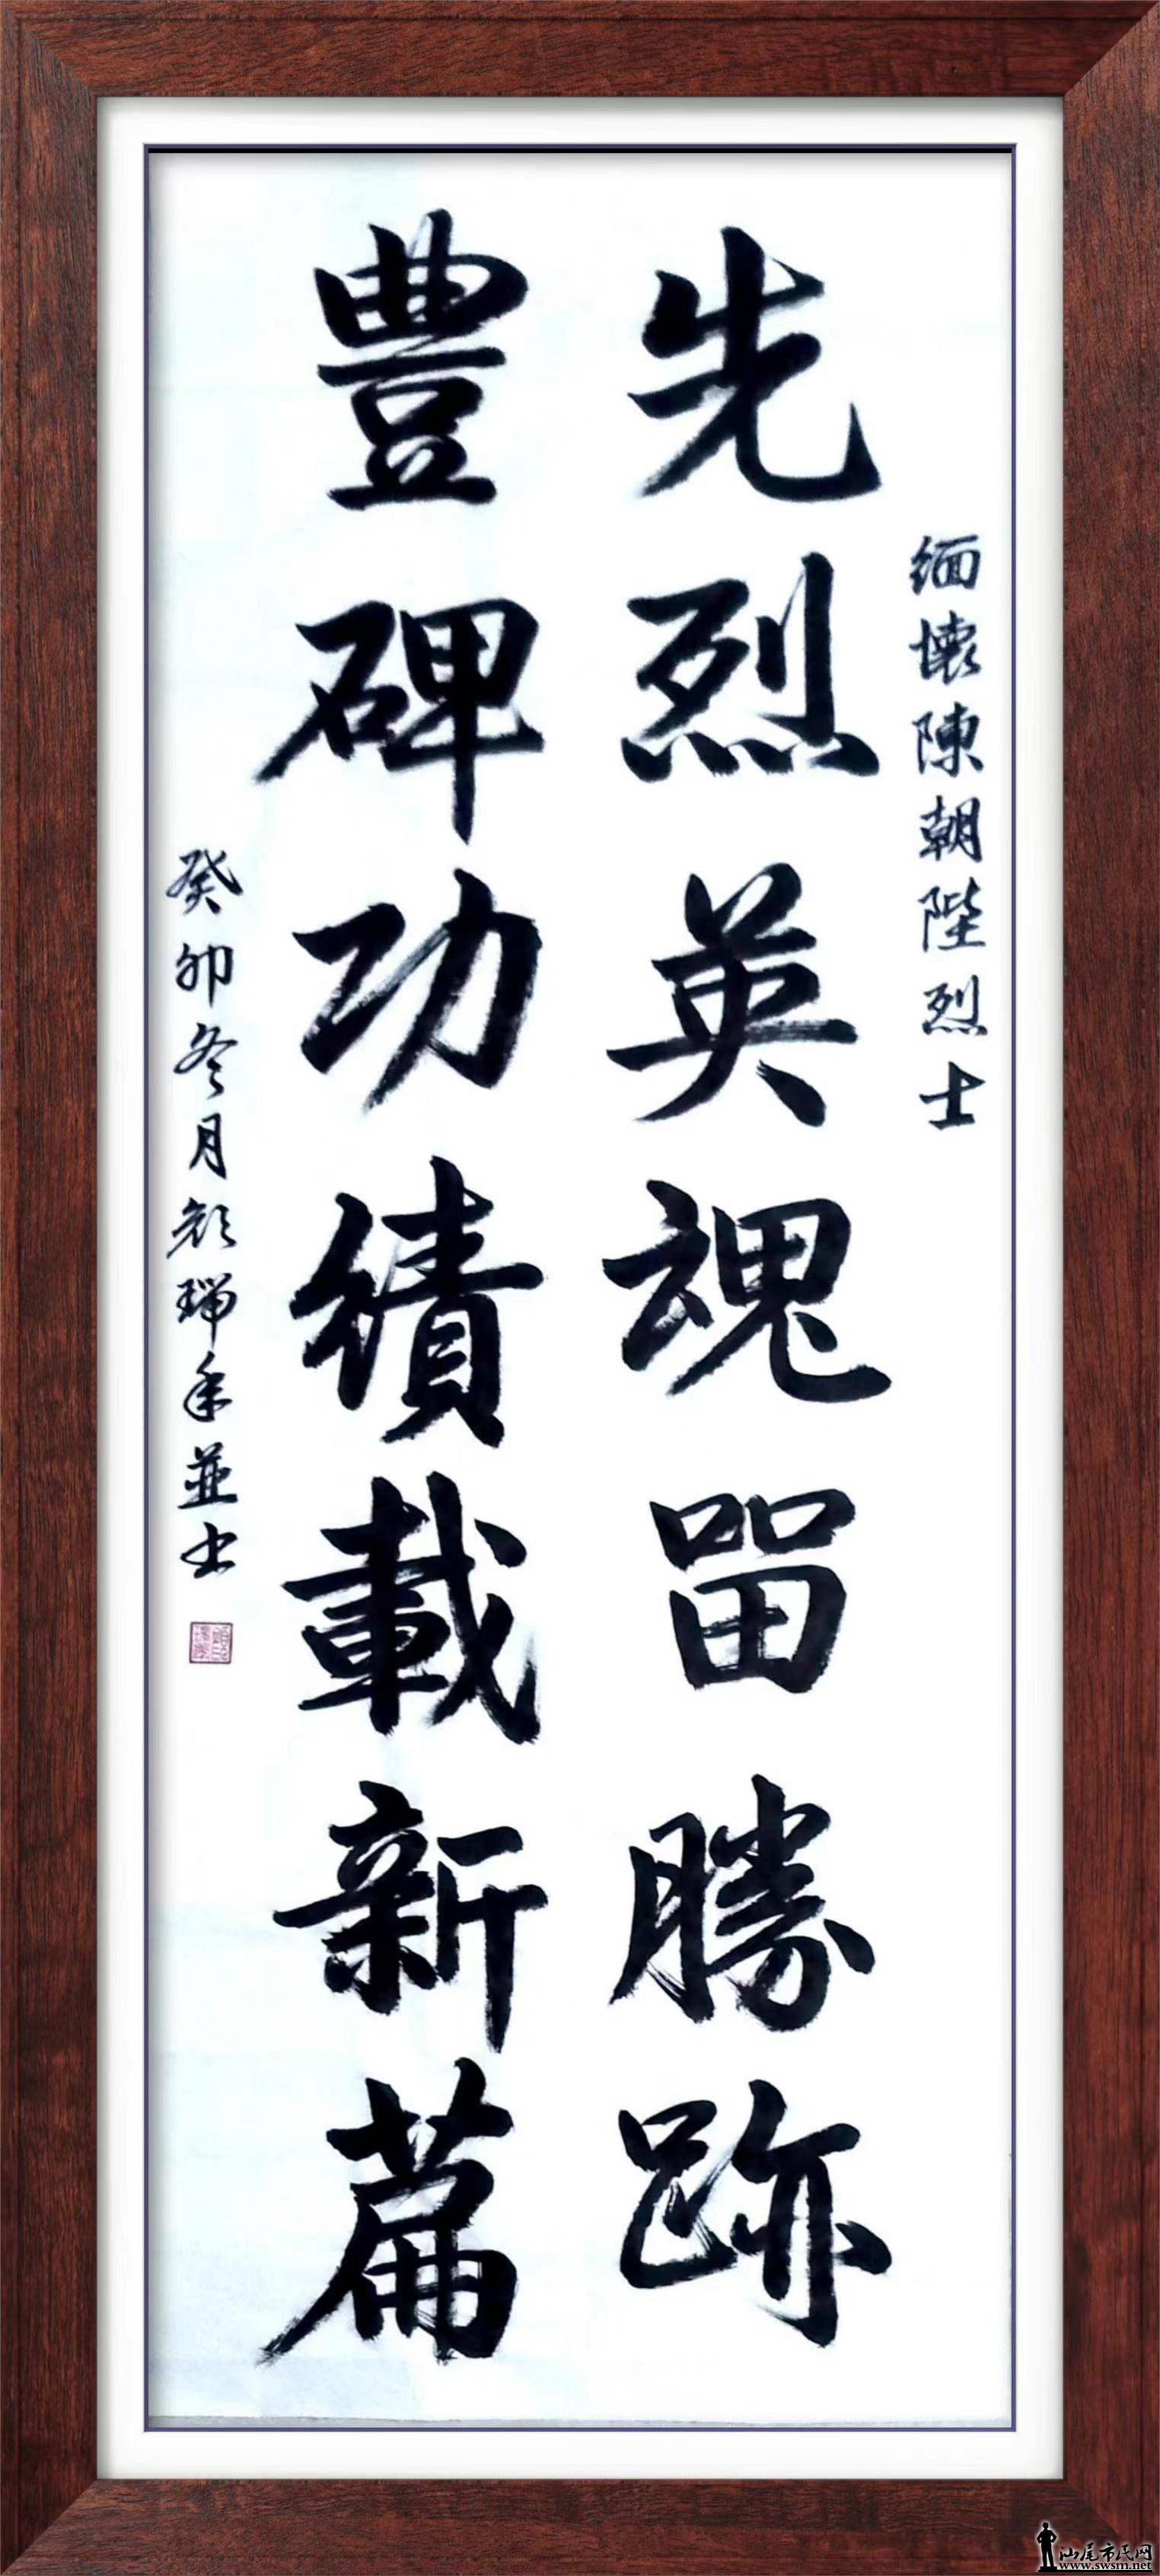 缅懷陳朝陛烈士
先烈英魂留勝跡
豐碑功績載新篇
癸卯冬月彭瑞年並书
汕尾市民网
www.swsm.net